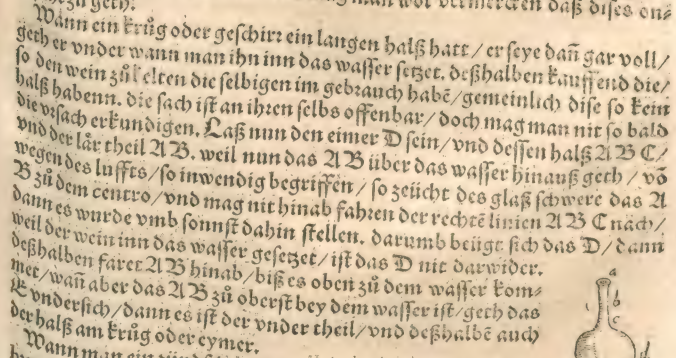 mag man wol vermercken daß dises on⸗
geth.
Wann ein krůg oder geschirr ein langen halß hatt / er seye dañ gar voll /
geth er vnder wann man ihn inn das wasser setzet. deßhalben kauffend die /
so den wein zů kelten die selbigen im gebrauch habē / gemeinlich dise so kein
halß habenn. die sach ist an ihren selbs offenbar / doch mag man nit so bald
die vrsach erkundigen. Laß nun den eimer D sein / vnd dessen halß A B C /
vnd der lår theil A B. weil nun das A B über das wasser hinauß geth / võ
wegen des luffts / so inwendig begriffen / so zeücht des glaß schwere das A
B zů dem centro / vnd mag nit hinab fahren der rechtē linien A B C nach /
dann es wurde vmb sonnst dahin stellen. darumb beügt sich das D / dann
weil der wein inn das wasser gesetzet / ist das D nit darwider.
deßhalben faret A B hinab / biß es oben zů dem wasser kom⸗
met / wañ aber das A B zů oberst bey dem wasser ist / geth das
E vndersich / dann es ist der vnder theil / vnd deßhalbē auch
der halß am krůg oder eymer.
Wann man ein
a
b
c